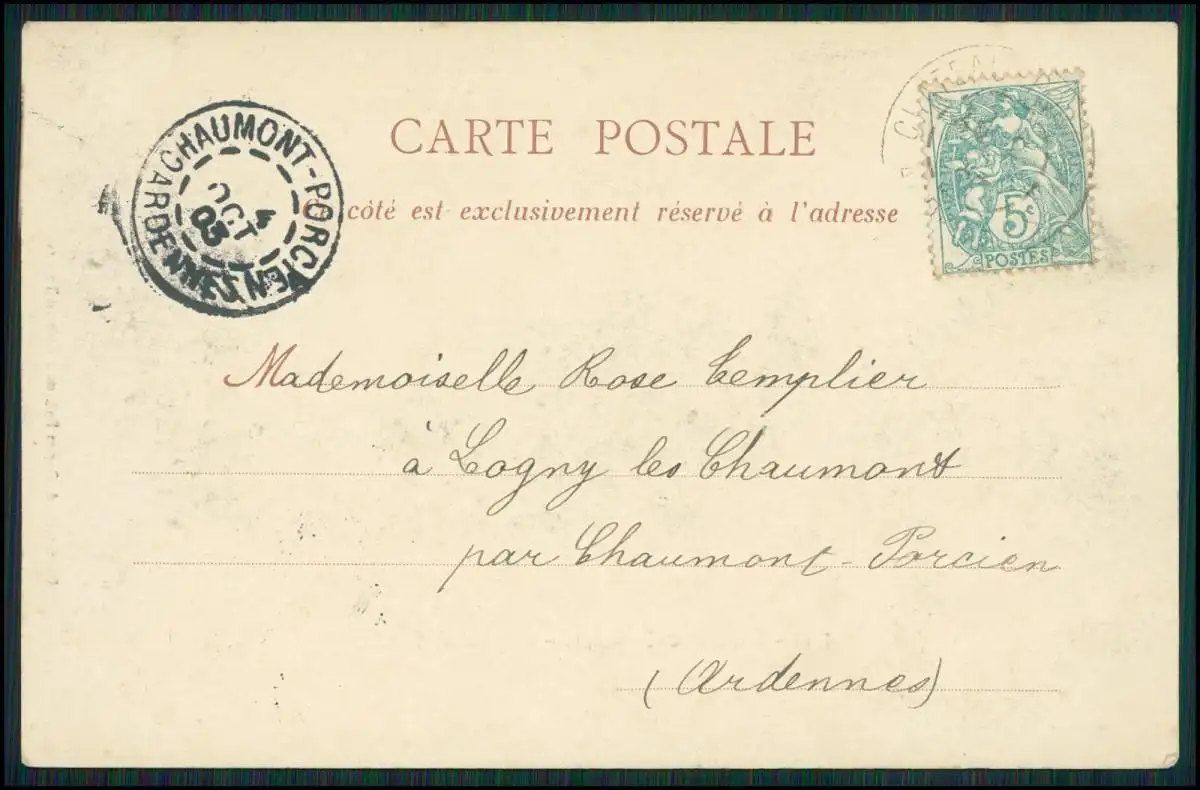 CARTE POSTALE
côté est exclusivement réservé à l'adresse
CHAUMONT-PORCIEN
ARDENNES
OCT
03
5c
POSTES
Mademoiselle Rose Templier
à Logny les Chaumont
par Chaumont-Porcien
(Ardennes)